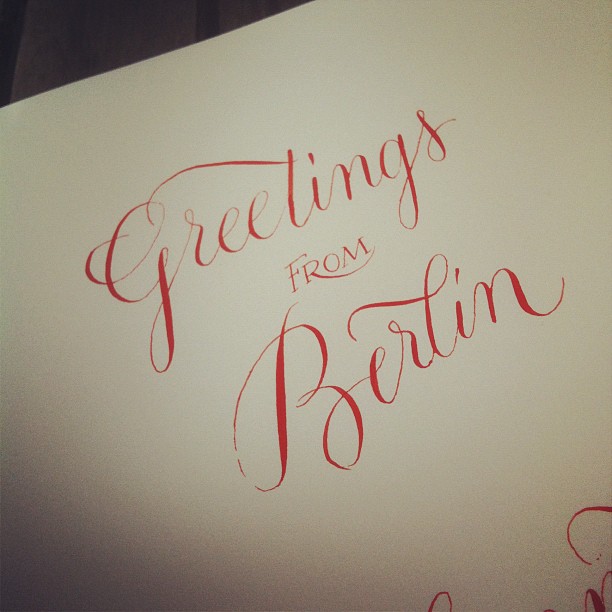 Greetings
FROM
Berlin